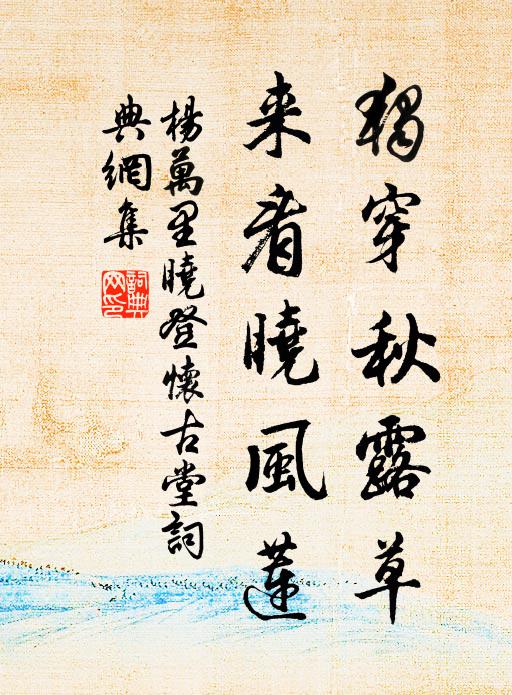 獨穿秋露草
来看曉風蓮
楊萬里曉登懷古堂詞
典網集
詞典
网印